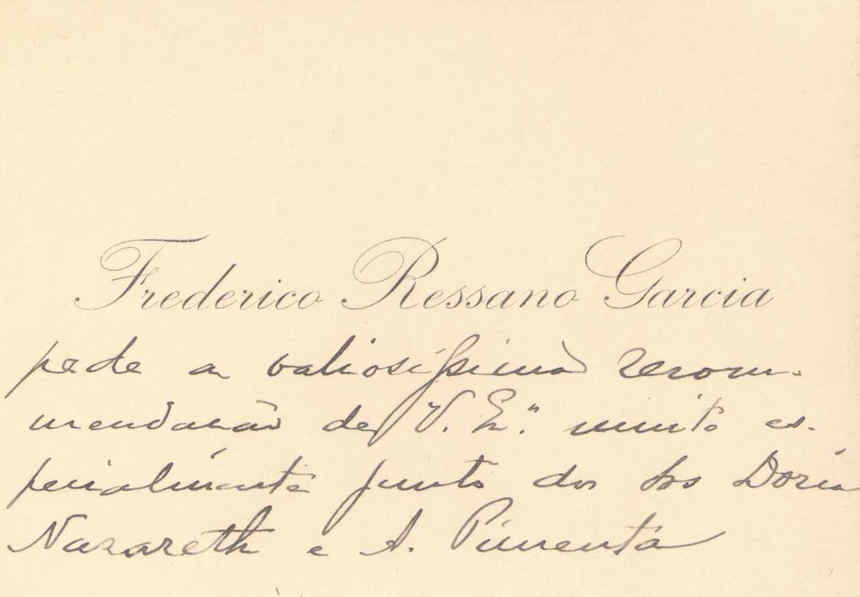 Frederico Ressano Garcia
pede a valiosissima recom-
mendação de V. Ex.ª muito es-
pecialmente junto dos Srs Doria
Nazareth e A. Pimenta